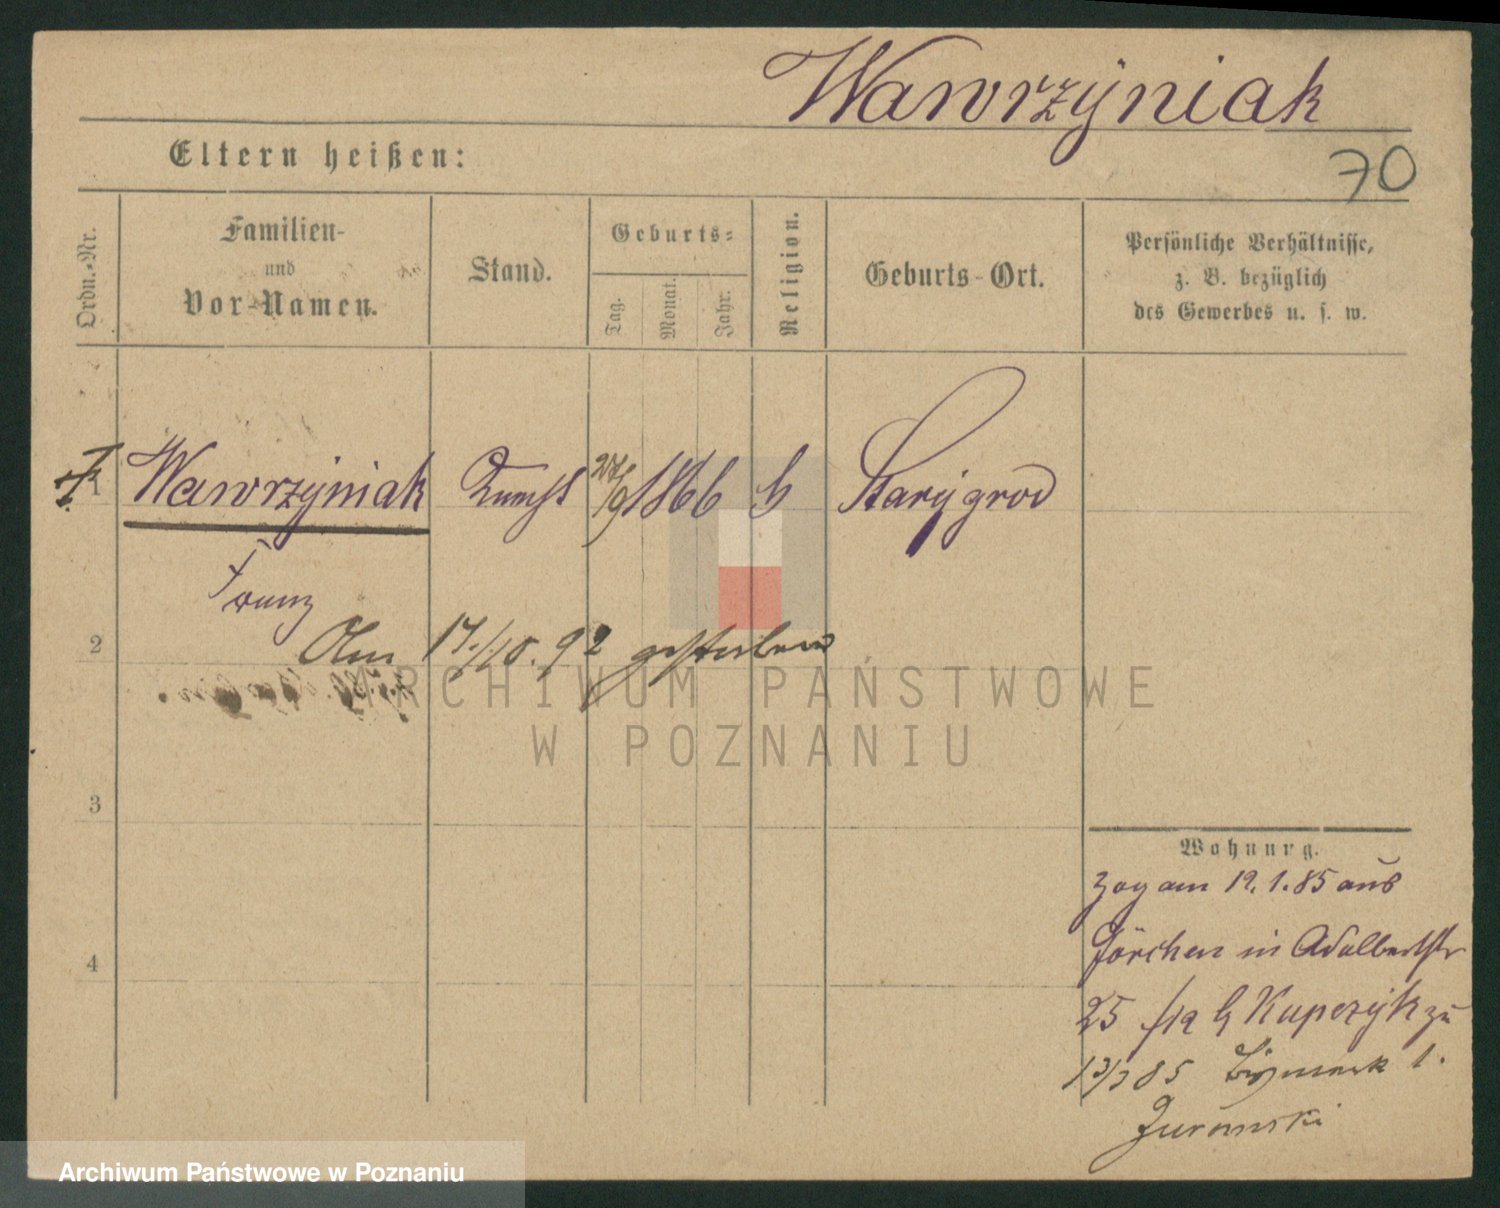 Wawrzÿniak
Eltern heißen:
70
Ordn.-Nr.
Familien-
und
Vor-Namen.
Stand.
Geburts-
Tag.
Monat.
Jahr.
Religion.
Geburts-Ort.
Persönliche Verhältnisse,
z. B. bezüglich
des Gewerbes u. s. w.
1 Wawrzÿniak Knecht 27/9 1866 Starÿgrod
Franz
2 Am 17./10. 92 gestorben
3
4
Wohnung.
Zog am 19.1.85 aus
Görchen in Adalbertstr
25 Kupczÿk zu
13/3 85 Bismark 1.
Zuromski
ARCHIWUM PAŃSTWOWE
W POZNANIU
Archiwum Państwowe w Poznaniu